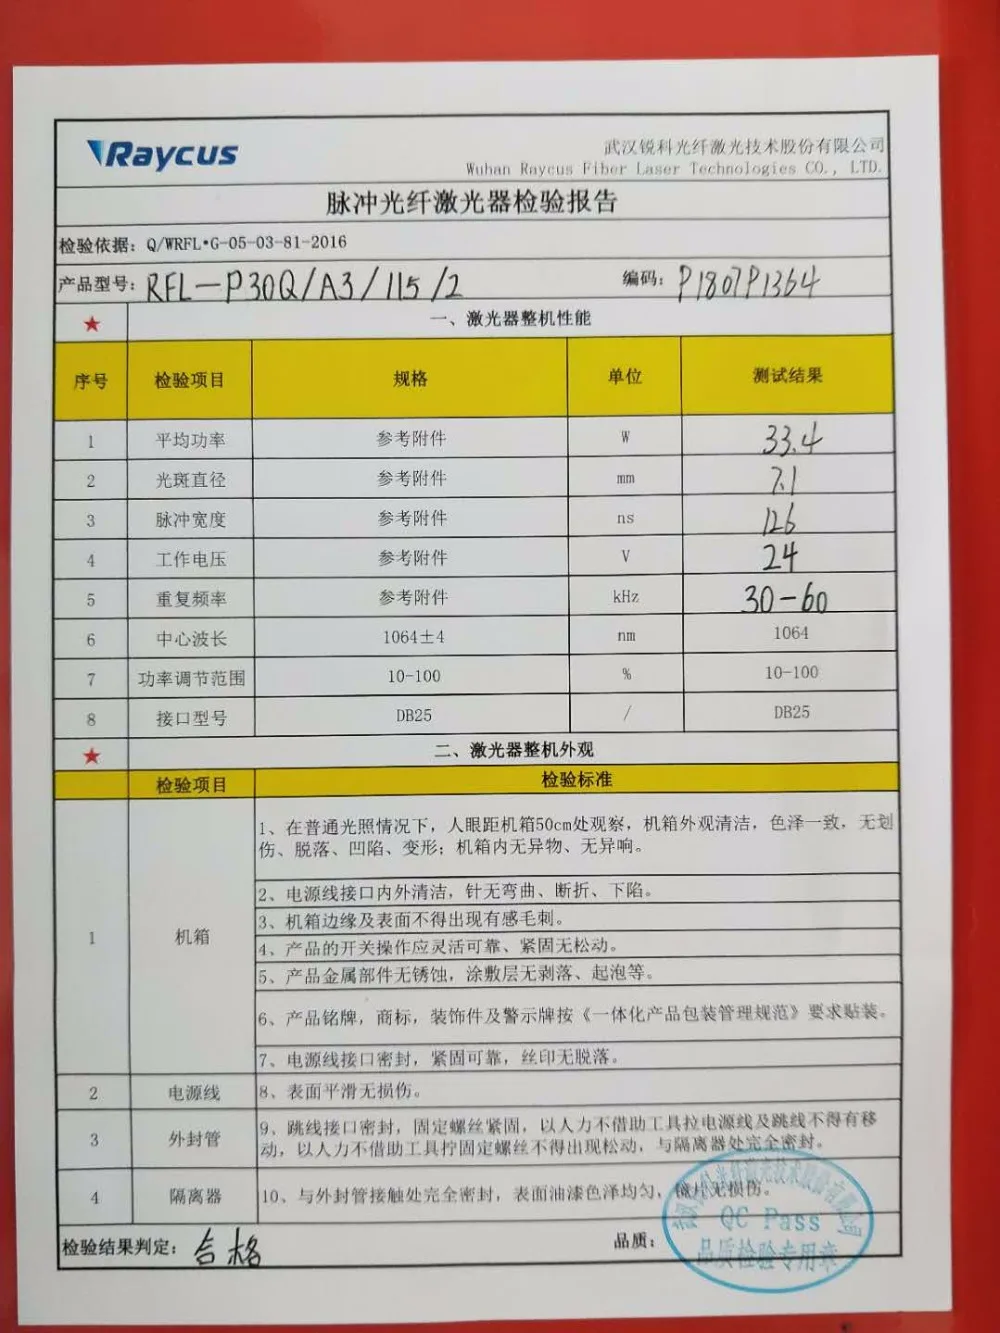 Raycus
武汉锐科光纤激光技术股份有限公司
Wuhan Raycus Fiber Laser Technologies CO., LTD.
脉冲光纤激光器检验报告
检验依据: Q/WRFL•G-05-03-81-2016
产品型号: RFL-P30Q/A3/115/2 编码: P1807P1364
★ 一、激光器整机性能
序号 检验项目 规格 单位 测试结果
1 平均功率 参考附件 W 33.4
2 光斑直径 参考附件 mm 7.1
3 脉冲宽度 参考附件 ns 126
4 工作电压 参考附件 V 24
5 重复频率 参考附件 kHz 30-60
6 中心波长 1064±4 nm 1064
7 功率调节范围 10-100 % 10-100
8 接口型号 DB25 / DB25
★ 二、激光器整机外观
检验项目 检验标准
1 机箱
1、在普通光照情况下，人眼距机箱50cm处观察，机箱外观清洁，色泽一致，无划
伤、脱落、凹陷、变形；机箱内无异物、无异响。
2、电源线接口内外清洁，针无弯曲、断折、下陷。
3、机箱边缘及表面不得出现有感毛刺。
4、产品的开关操作应灵活可靠、紧固无松动。
5、产品金属部件无锈蚀，涂敷层无剥落、起泡等。
6、产品铭牌，商标，装饰件及警示牌按《一体化产品包装管理规范》要求贴装。
7、电源线接口密封，紧固可靠，丝印无脱落。
2 电源线 8、表面平滑无损伤。
3 外封管 9、跳线接口密封，固定螺丝紧固，以人力不借助工具拉电源线及跳线不得有移
动，以人力不借助工具拧固定螺丝不得出现松动，与隔离器处完全密封。
4 隔离器 10、与外封管接触处完全密封，表面油漆色泽均匀，镜片无损伤。
检验结果判定: 合格 品质:
QC Pass
品质检验专用章